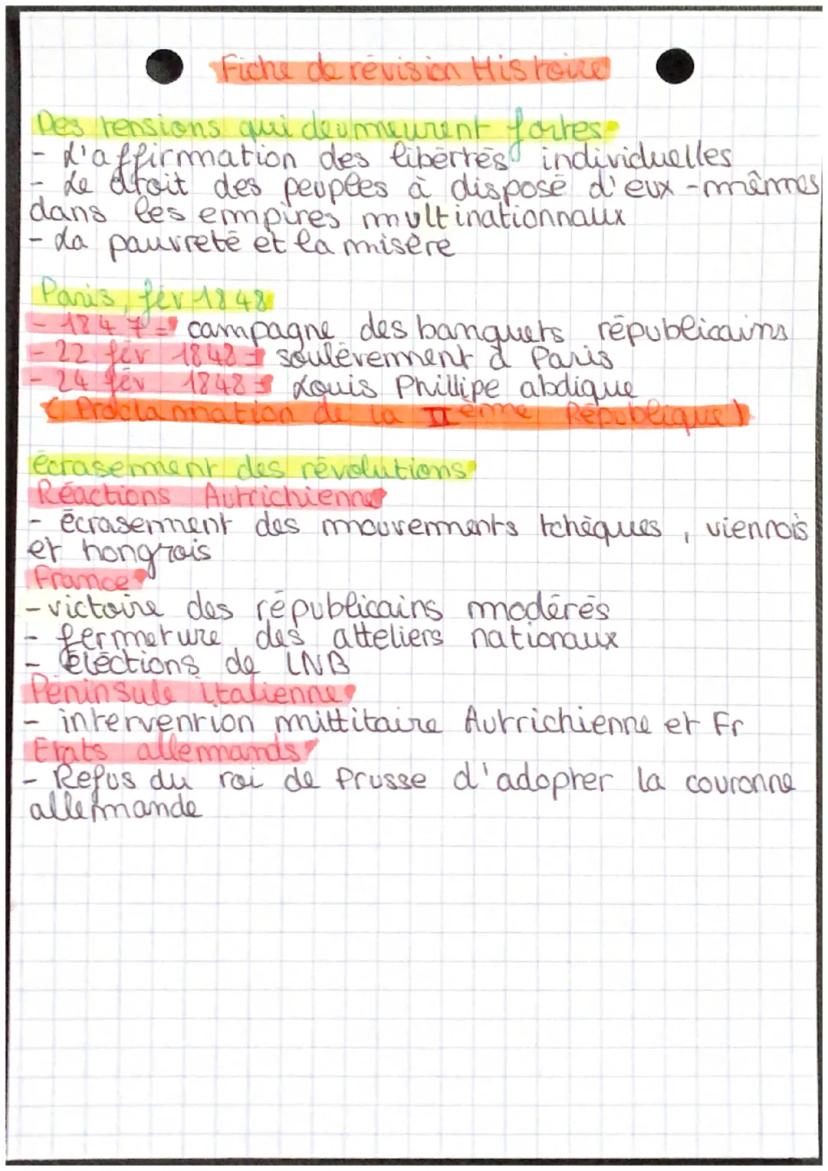 Fiche de révision Histoire
Des tensions qui deumeurent fortes
- L'affirmation des libertés individuelles
- Le droit des peuples à disposé d'eux-mêmes
dans les empires multinationnaux
- La pauvreté et la misère
Paris, fév 1848
- 1847 = campagne des banquets républicains
- 22 fév 1848 = soulèvement à Paris
- 24 fév 1848 = Louis Phillipe abdique
(Proclamation de la IIème République)
écrasement des révolutions
Réactions Autrichienne
- écrasement des mouvements tchèques, viennois
et hongrois
France
- victoire des républicains modérés
- fermeture des atteliers nationaux
- éléctions de LNB
Péninsule italienne
- intervention millitaire Autrichienne et Fr
Etats allemands
- Refus du roi de Prusse d'adopter la couronne
allemande